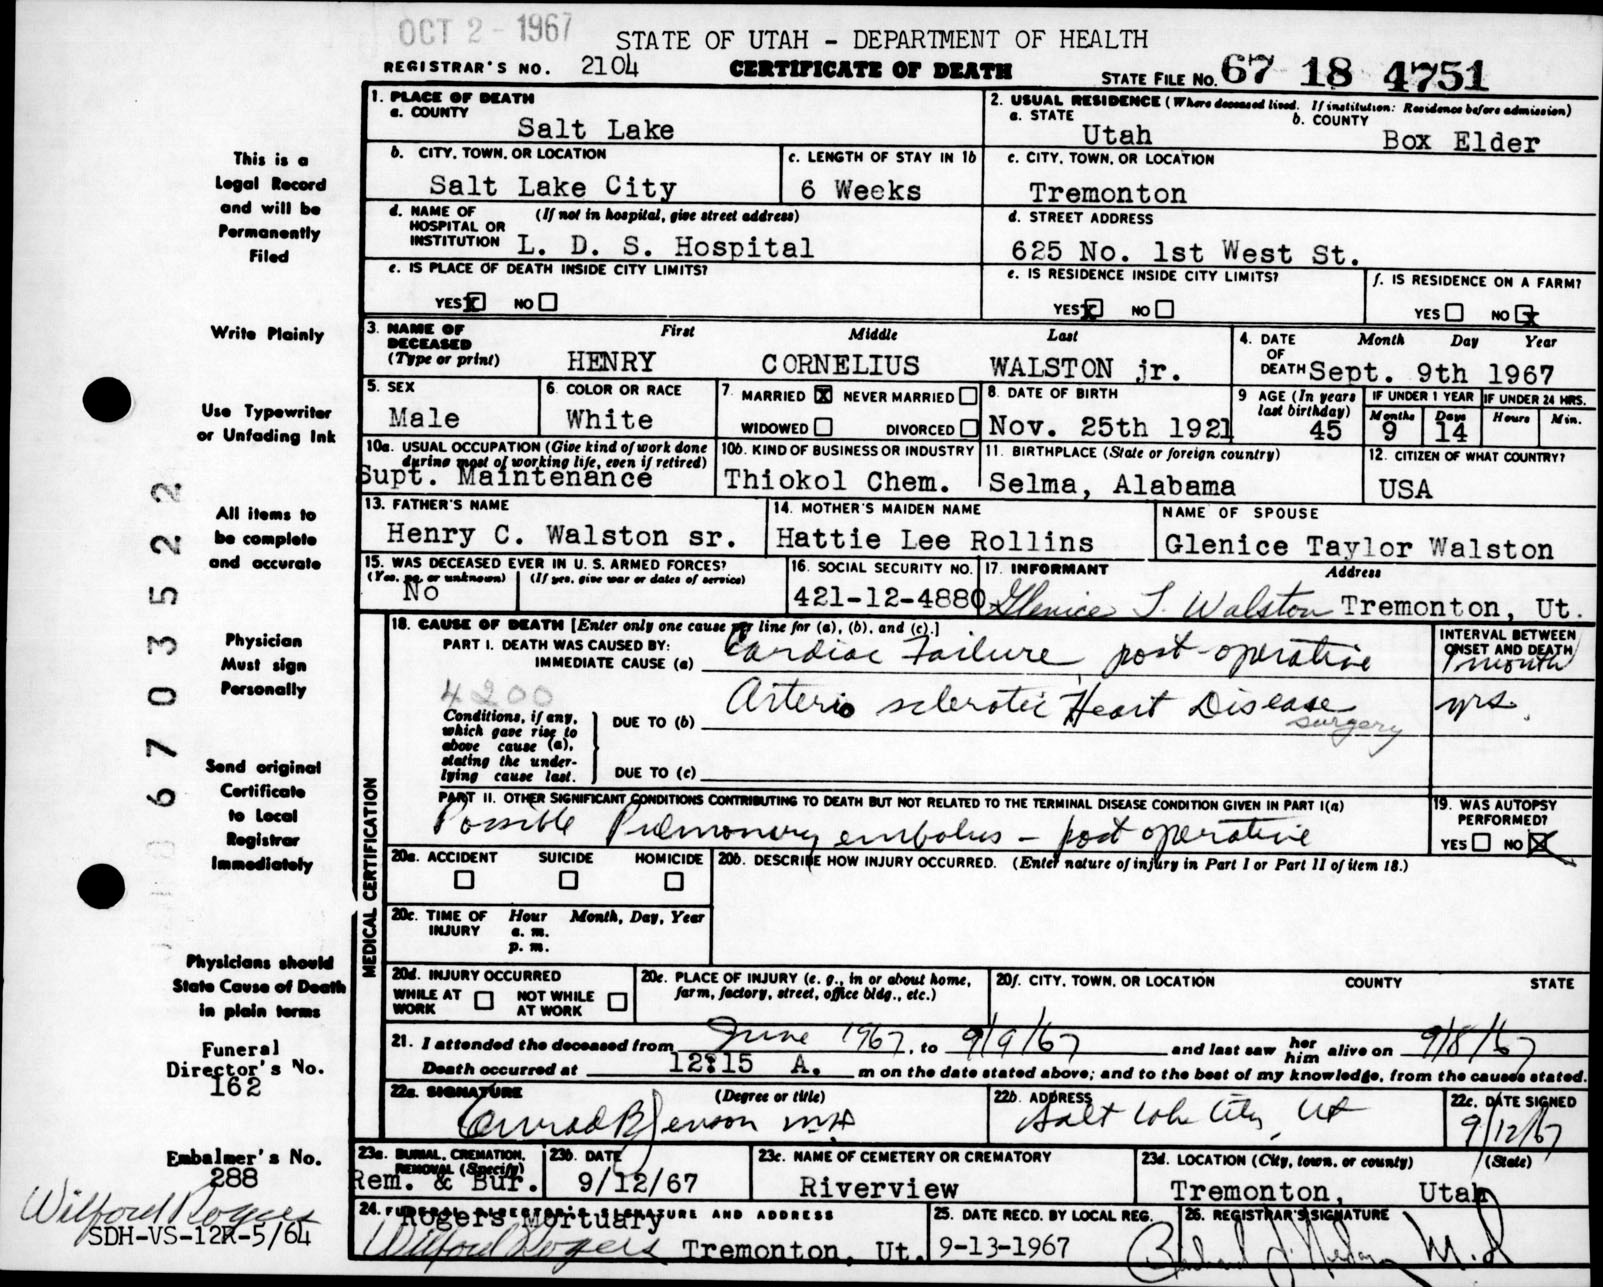 OCT 2 - 1967
STATE OF UTAH - DEPARTMENT OF HEALTH
REGISTRAR'S NO. 2104 CERTIFICATE OF DEATH STATE FILE NO. 67 18 4751
1. PLACE OF DEATH
a. COUNTY
Salt Lake
2. USUAL RESIDENCE (Where deceased lived. If institution: Residence before admission)
a. STATE b. COUNTY
Utah Box Elder
b. CITY, TOWN, OR LOCATION
Salt Lake City
c. LENGTH OF STAY IN 1b
6 Weeks
c. CITY, TOWN, OR LOCATION
Tremonton
d. NAME OF HOSPITAL OR INSTITUTION (If not in hospital, give street address)
L. D. S. Hospital
d. STREET ADDRESS
625 No. 1st West St.
e. IS PLACE OF DEATH INSIDE CITY LIMITS?
YES x NO
e. IS RESIDENCE INSIDE CITY LIMITS?
YES x NO
f. IS RESIDENCE ON A FARM?
YES NO x
3. NAME OF DECEASED (Type or print)
First Middle Last
HENRY CORNELIUS WALSTON jr.
4. DATE OF DEATH Month Day Year
Sept. 9th 1967
5. SEX
Male
6. COLOR OR RACE
White
7. MARRIED X NEVER MARRIED
WIDOWED DIVORCED
8. DATE OF BIRTH
Nov. 25th 1921
9 AGE (In years last birthday)
45
IF UNDER 1 YEAR
Months Days
9 14
IF UNDER 24 HRS.
Hours Min.
10a. USUAL OCCUPATION (Give kind of work done during most of working life, even if retired)
Supt. Maintenance
10b. KIND OF BUSINESS OR INDUSTRY
Thiokol Chem.
11. BIRTHPLACE (State or foreign country)
Selma, Alabama
12. CITIZEN OF WHAT COUNTRY?
USA
13. FATHER'S NAME
Henry C. Walston sr.
14. MOTHER'S MAIDEN NAME
Hattie Lee Rollins
NAME OF SPOUSE
Glenice Taylor Walston
15. WAS DECEASED EVER IN U. S. ARMED FORCES?
(Yes, no, or unknown) (If yes, give war or dates of service)
No
16. SOCIAL SECURITY NO.
421-12-4880
17. INFORMANT Address
Glenice T. Walston Tremonton, Ut.
18. CAUSE OF DEATH [Enter only one cause per line for (a), (b), and (c).]
PART I. DEATH WAS CAUSED BY:
IMMEDIATE CAUSE (a) Cardiac Failure, post-operative
INTERVAL BETWEEN ONSET AND DEATH
1 month
4200
Conditions, if any, which gave rise to above cause (a), stating the underlying cause last.
DUE TO (b) Arterio sclerotic Heart Disease
surgery
yrs.
DUE TO (c)
PART II. OTHER SIGNIFICANT CONDITIONS CONTRIBUTING TO DEATH BUT NOT RELATED TO THE TERMINAL DISEASE CONDITION GIVEN IN PART I(a)
Possible Pulmonary embolus - post operative
19. WAS AUTOPSY PERFORMED?
YES NO X
20a. ACCIDENT SUICIDE HOMICIDE
20b. DESCRIBE HOW INJURY OCCURRED. (Enter nature of injury in Part I or Part II of item 18.)
20c. TIME OF INJURY Hour Month, Day, Year
a. m.
p. m.
20d. INJURY OCCURRED
WHILE AT WORK NOT WHILE AT WORK
20e. PLACE OF INJURY (e. g., in or about home, farm, factory, street, office bldg., etc.)
20f. CITY, TOWN, OR LOCATION COUNTY STATE
21. I attended the deceased from June 1967, to 9/9/67 and last saw her him alive on 9/8/67
Death occurred at 12:15 A. m on the date stated above; and to the best of my knowledge, from the causes stated.
22a. SIGNATURE (Degree or title)
Conrad B Jenson MD
22b. ADDRESS
Salt Lake City, Ut
22c. DATE SIGNED
9/12/67
23a. BURIAL, CREMATION, REMOVAL (Specify)
Rem. & Bur.
23b. DATE
9/12/67
23c. NAME OF CEMETERY OR CREMATORY
Riverview
23d. LOCATION (City, town, or county) (State)
Tremonton, Utah
24. FUNERAL DIRECTOR'S SIGNATURE AND ADDRESS
Rogers Mortuary
Wilford Rogers Tremonton, Ut.
25. DATE RECD. BY LOCAL REG.
9-13-1967
26. REGISTRAR'S SIGNATURE
M.D
MEDICAL CERTIFICATION
This is a
Legal Record
and will be
Permanently
Filed
Write Plainly
Use Typewriter
or Unfading Ink
All items to
be complete
and accurate
Physician
Must sign
Personally
Send original
Certificate
to Local
Registrar
Immediately
Physicians should
State Cause of Death
in plain terms
Funeral
Director's No.
162
Embalmer's No.
288
Wilford Rogers
SDH-VS-12R-5/64
6703522